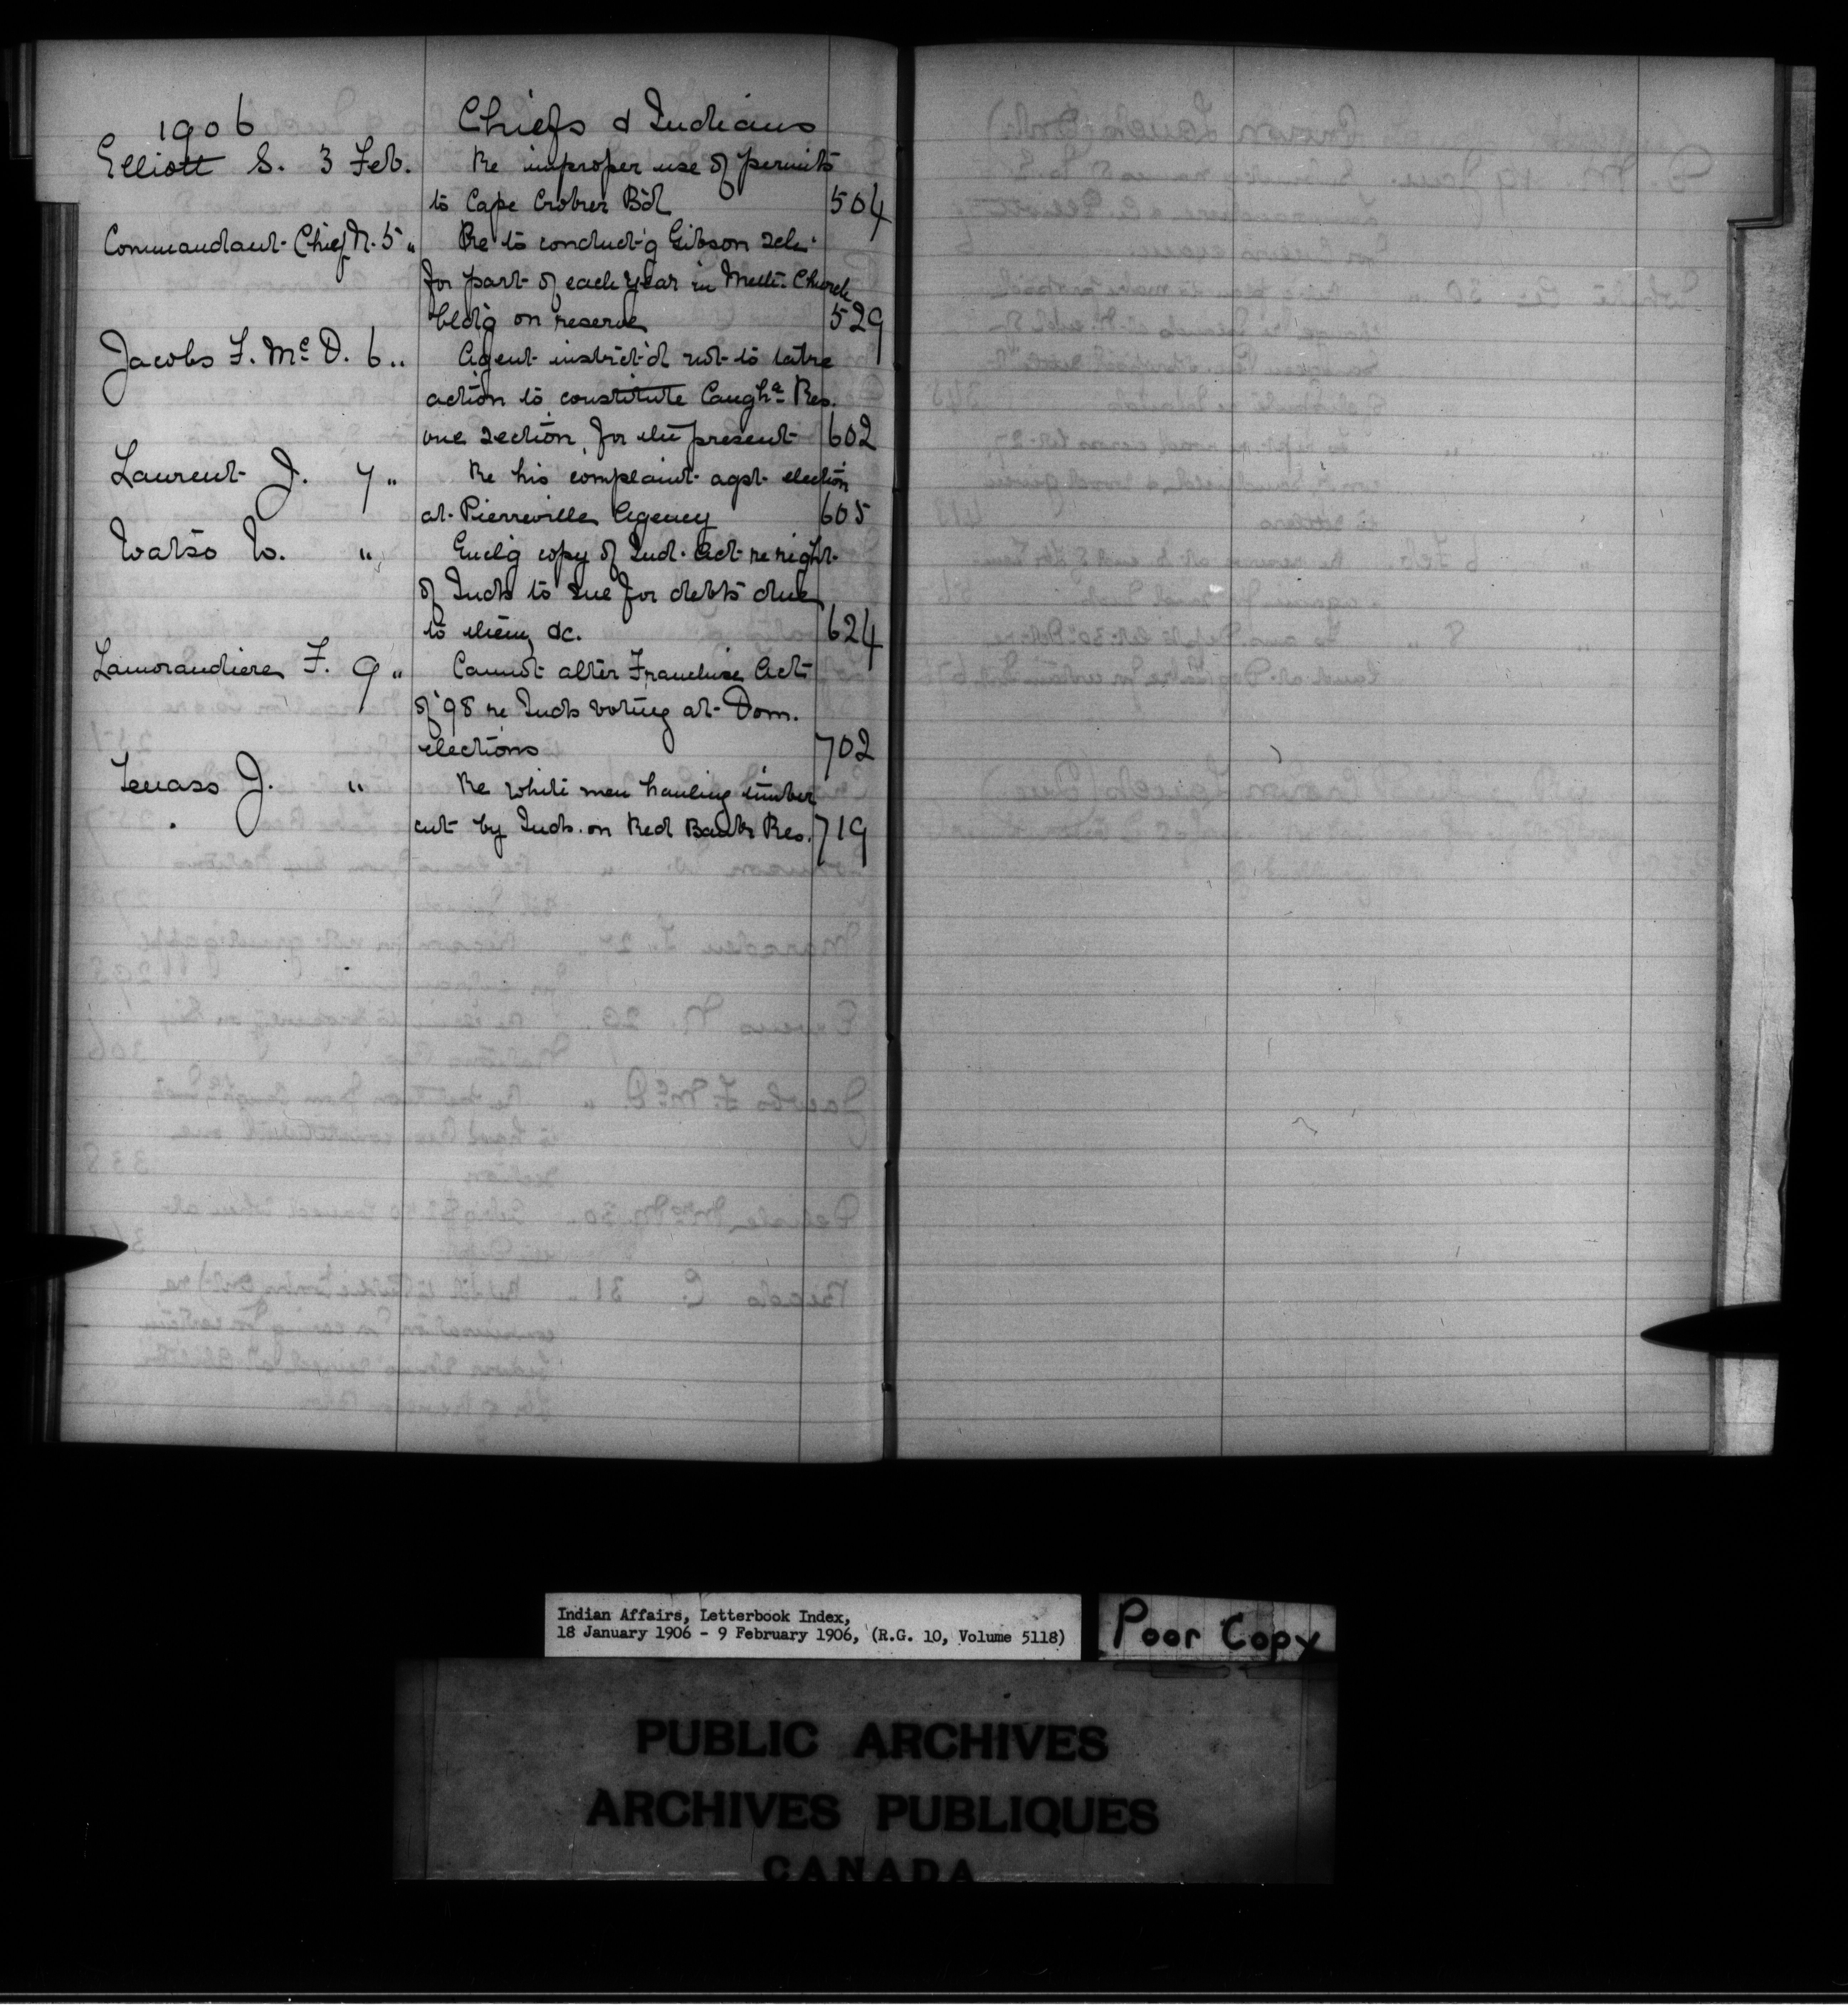 1906 Chiefs & Indians
Elliott S. 3 Feb. Re improper use of permits
to Cape Croker Bd 504
Commandant Chief N. 5 " Re to conduct'g Gibson
for part of each year in Meth. Church
bld'g on reserve 529
Jacobs F. McD. 6 " Agent instrct'd not to take
action to constitute Caugha Res.
one section for the present 602
Laurent J. 7 " Re his complaint agst election
at Pierreville Agency 605
Watso W. " Encl'g copy of Ind. Act re right
of Inds to sue for debts due
to them &c. 624
Lamorandiere F. 9 " Cannot alter Franchise Act
of '98 re Inds voting at Dom.
elections 702
J. " Re white men hauling timber
cut by Inds. on Red Bank Res. 719
Indian Affairs, Letterbook Index,
18 January 1906 - 9 February 1906, (R.G. 10, Volume 5118)
Poor Copy
PUBLIC ARCHIVES
ARCHIVES PUBLIQUES
CANADA